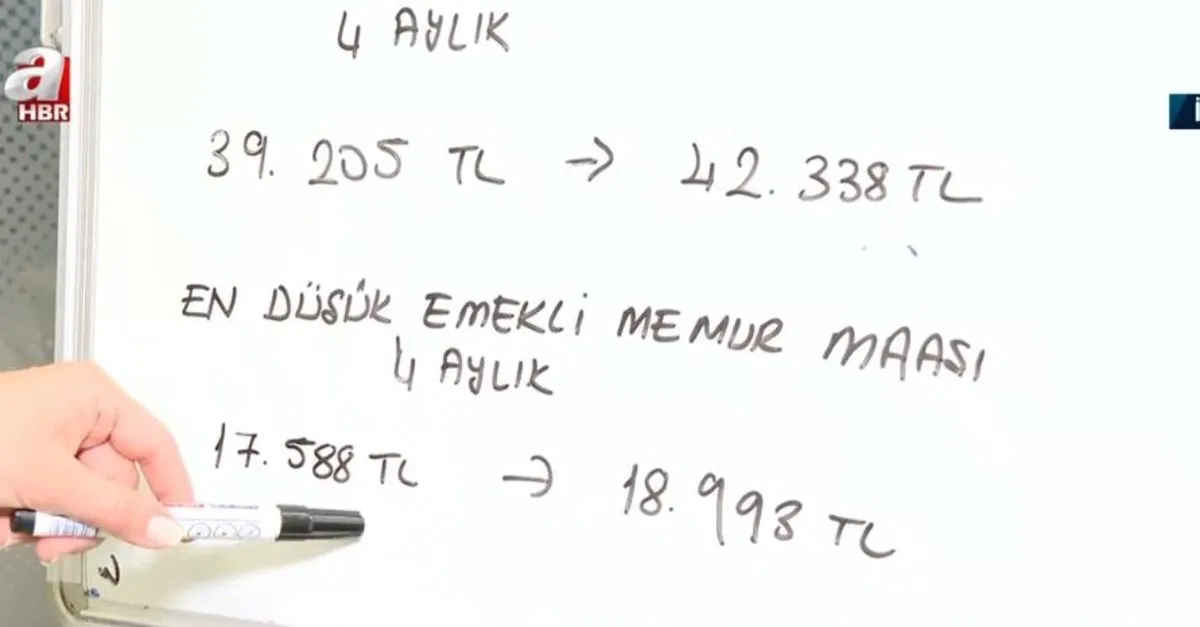 a
HBR
4 AYLIK
39.205 TL → 42.338 TL
EN DÜŞÜK EMEKLİ MEMUR MAAŞI
4 AYLIK
17.588 TL → 18.993 TL